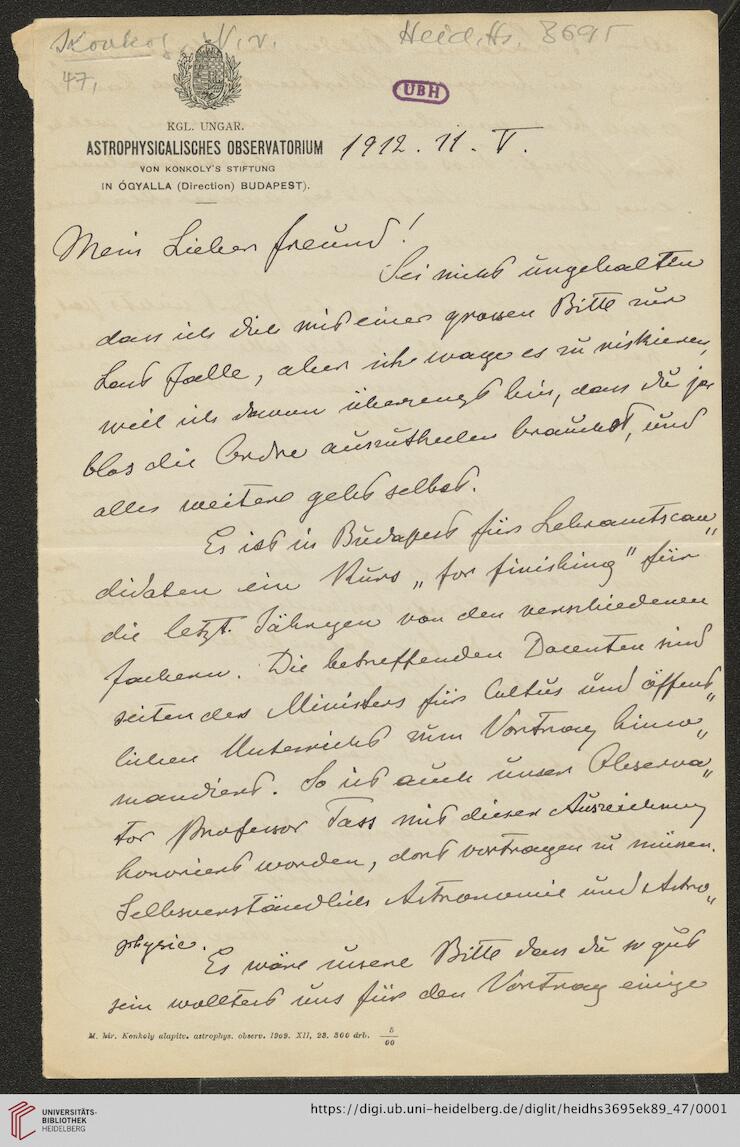 Konkoly, N. v.
Heid. Hs. 3695
47,
UBH
KGL. UNGAR.
ASTROPHYSICALISCHES OBSERVATORIUM
VON KONKOLY'S STIFTUNG
IN ÓGYALLA (Direction) BUDAPEST).
1912. 11. V.
Mein Lieber Freund!
Sei nicht ungehalten
dass ich dich mit einer grossen Bitte zur
Last falle, aber ich wage es zu riskieren,
weil ich davon überzeugt bin, dass du ja
blos die Ordre auszutheilen brauchst, und
alles weitere geht selbst.
Es ist in Budapest für Lehramtscan„
didaten ein Kurs „for finishing" für
die letzt. Jährigen von den verschiedenen
Fachern. Die betreffenden Docenten sind
seiten des Ministers für Cultus und öffent„
lichen Unterrichts zum Vortrag
mandiert. So ist auch unser Observa„
tor Professor Tass mit dieser Auszeichnung
honoriert worden, dort vortragen zu müssen.
Selbsverständlich Astronomie und Astro„
physic.
Es wäre unsere Bitte dass du so gut
sein wolltest uns für den Vortrag einige
M. kir. Konkoly alapitv. astrophys. observ. 1909. XII, 23. 500 drb. 5/00
UNIVERSITÄTS-
BIBLIOTHEK
HEIDELBERG
https://digi.ub.uni-heidelberg.de/diglit/heidhs3695ek89_47/0001